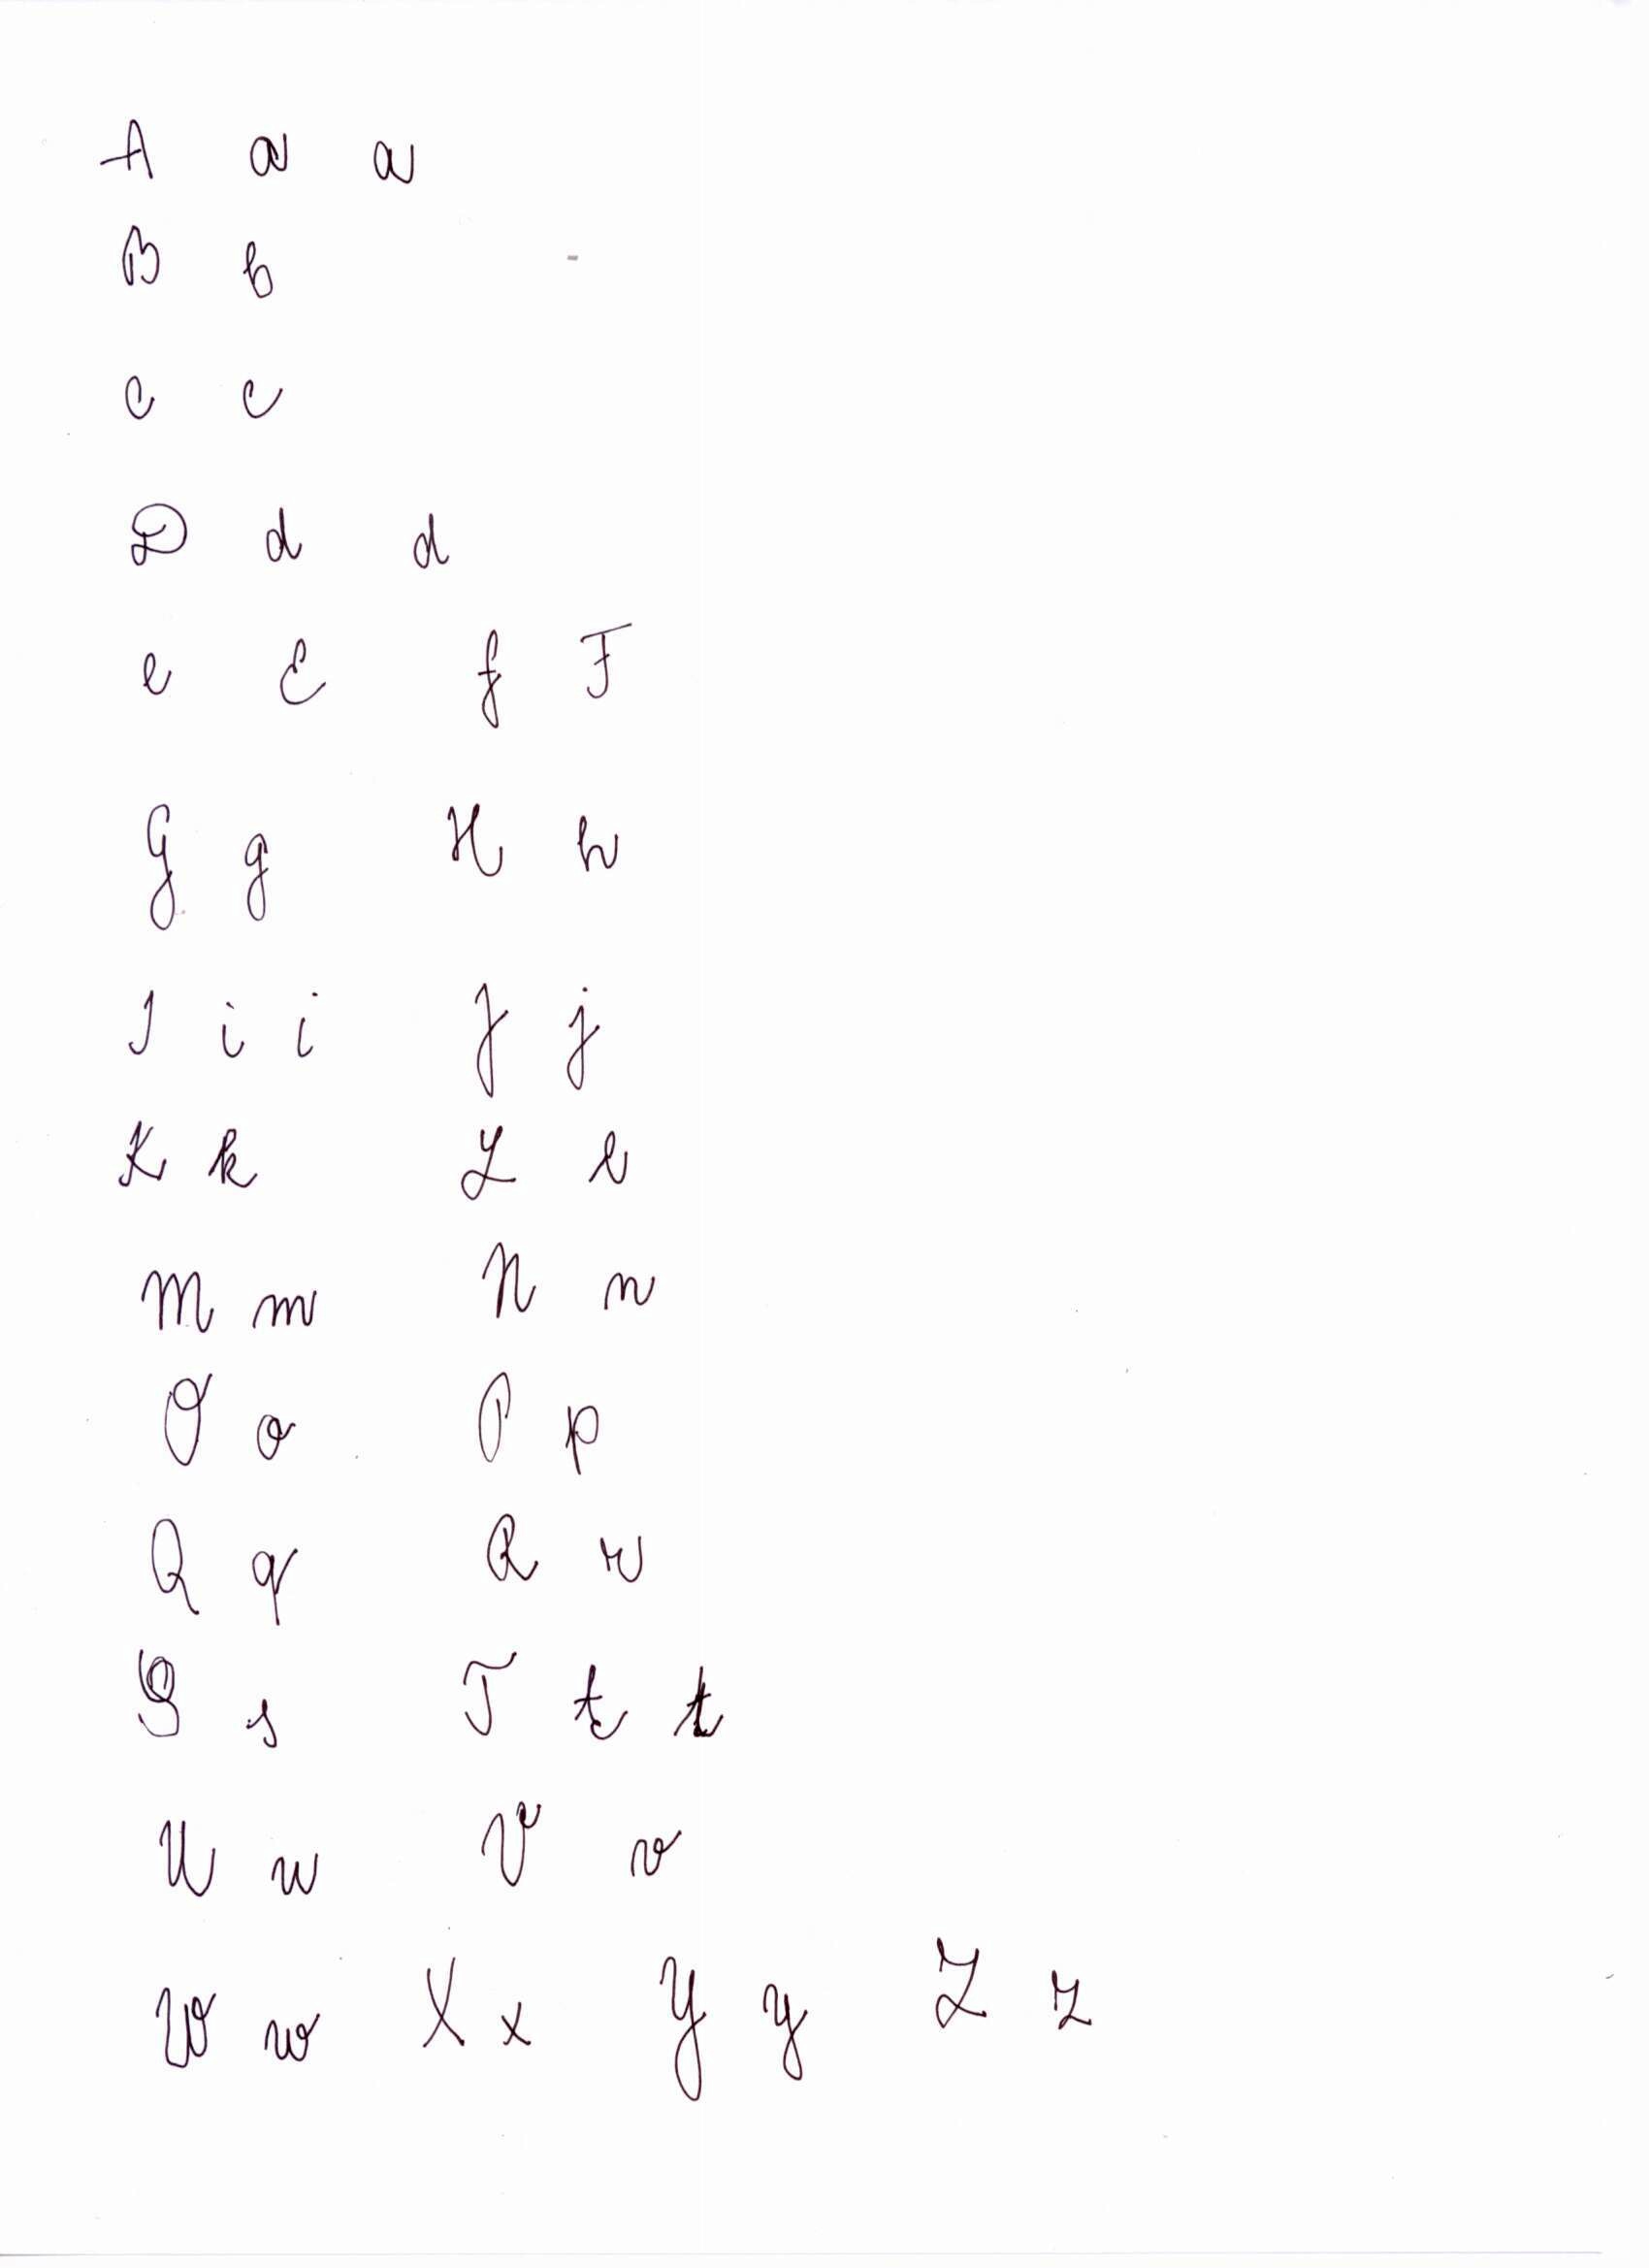 A a a
B b
C c
D d d
e E f F
G g H h
I i i J j
K k L l
M m N n
O o P p
Q q R r
S s T t t
U u V v
W w X x Y y Z z